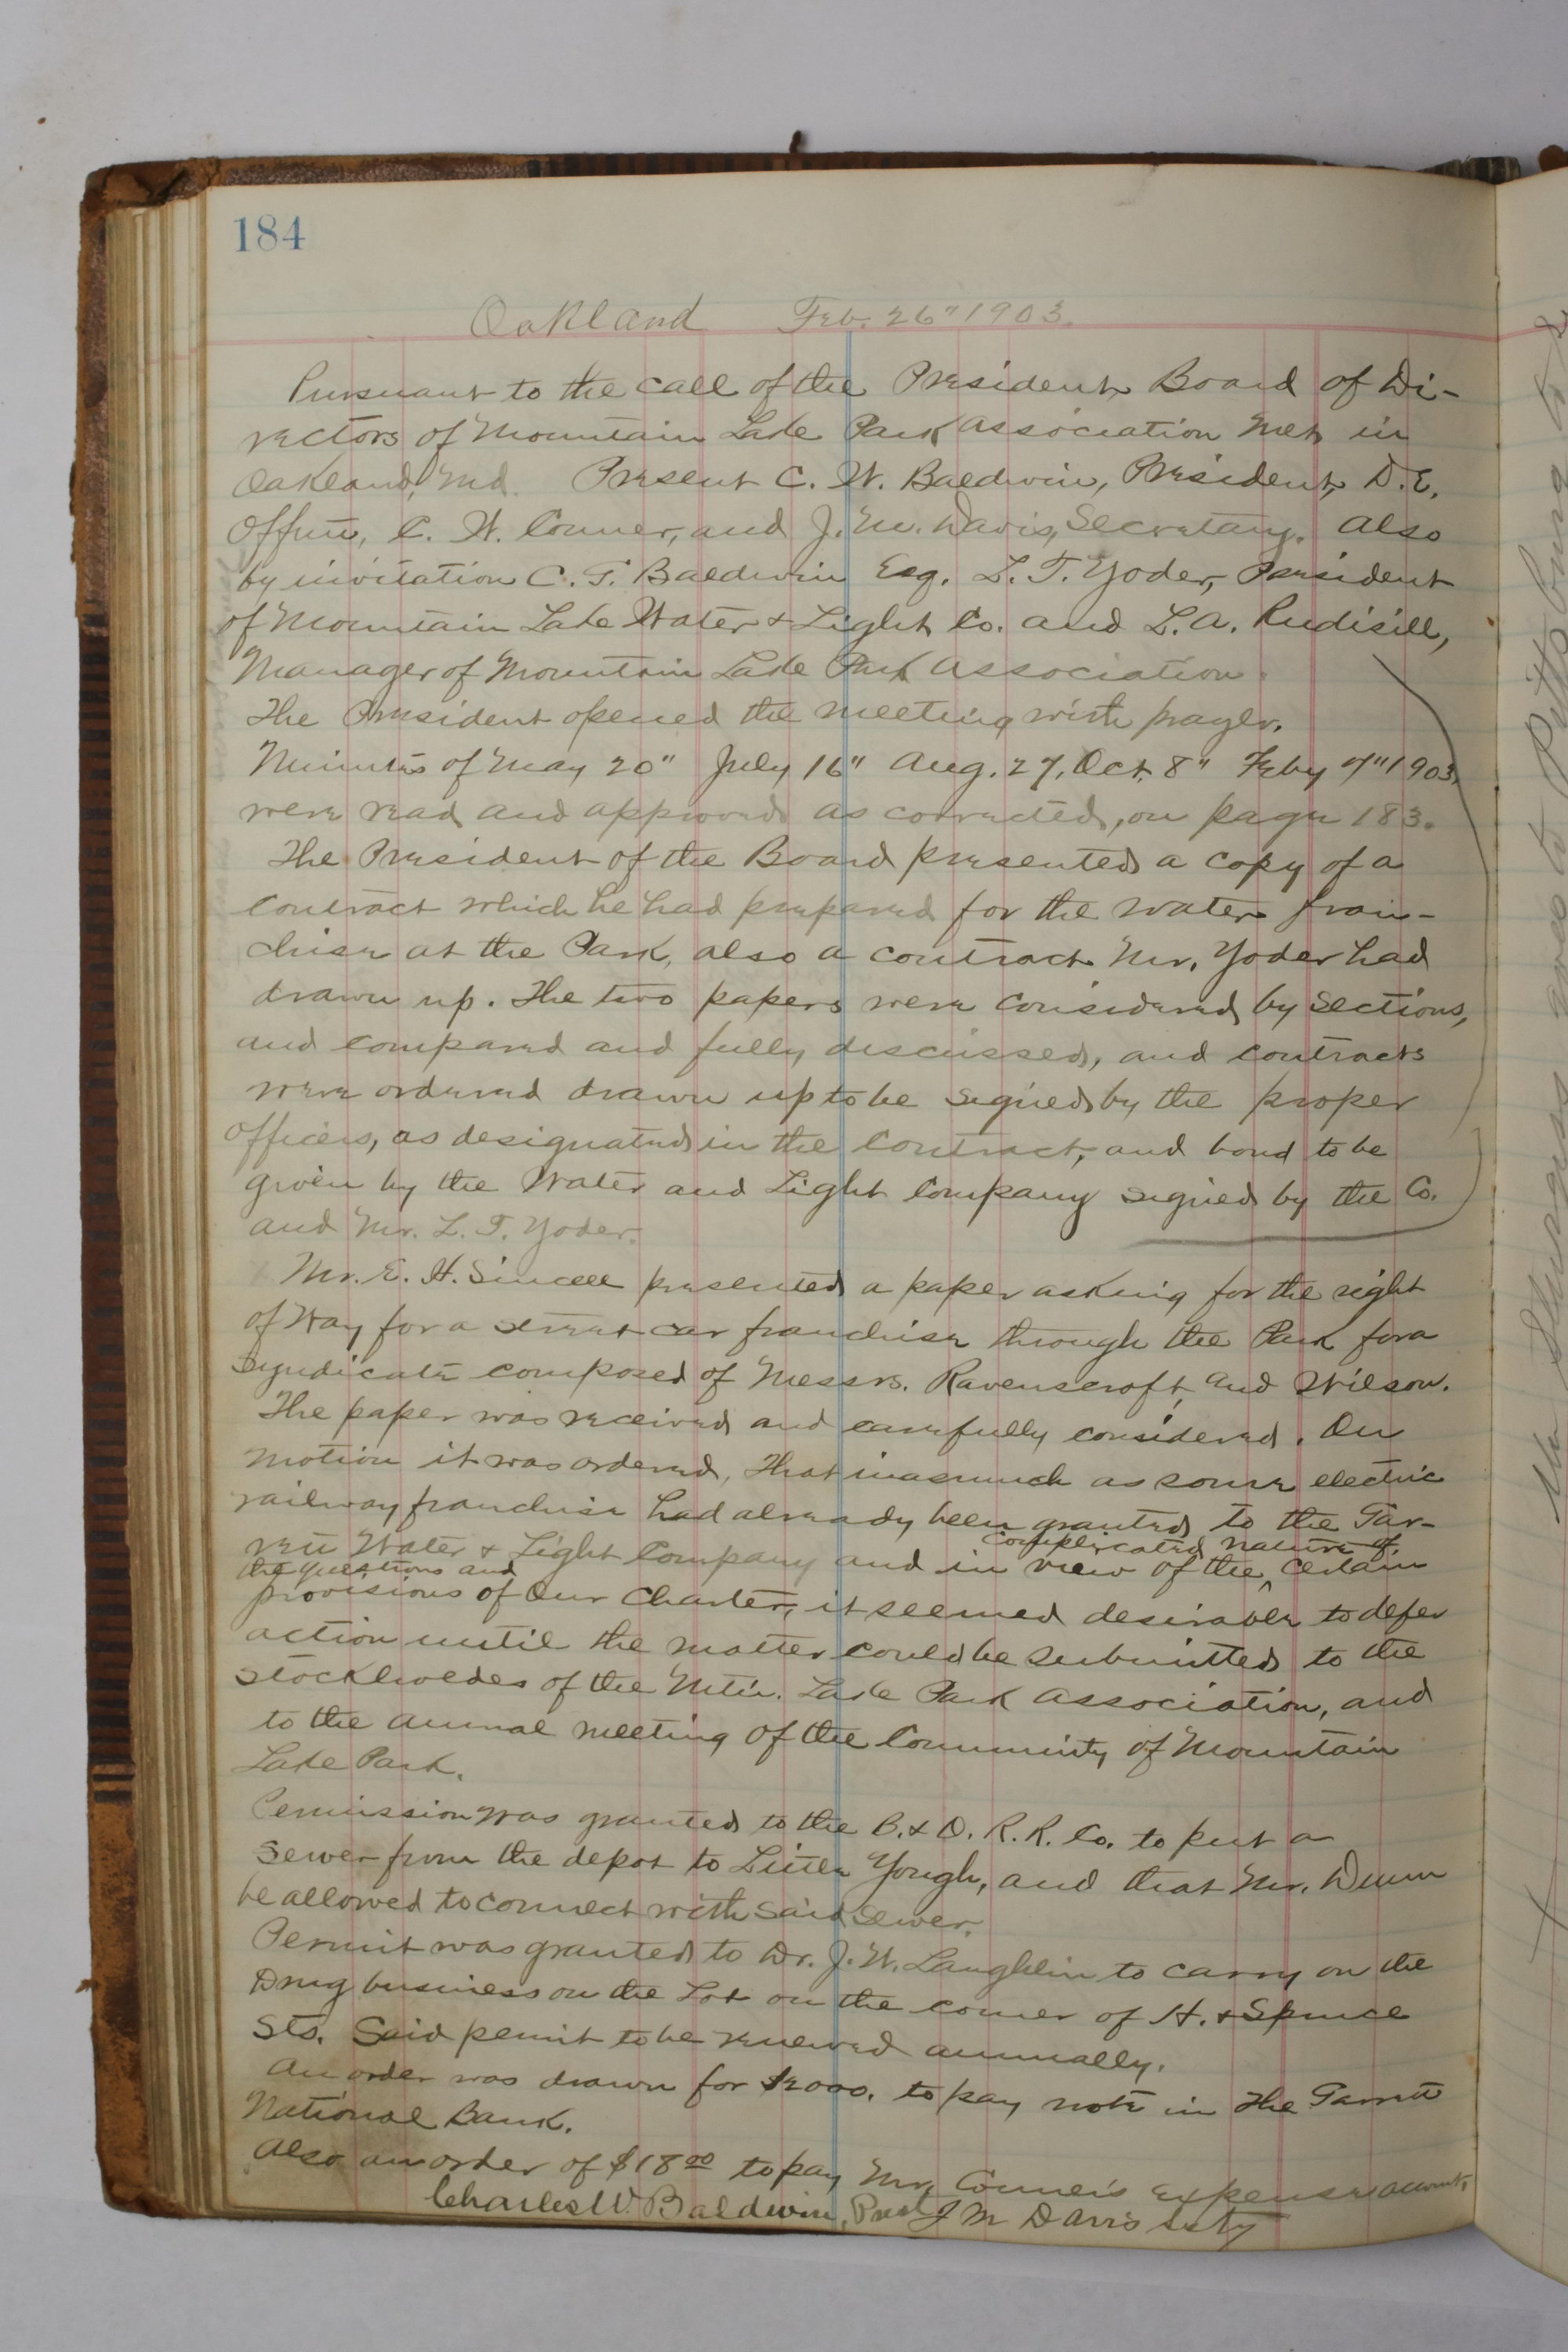 184
Oakland Feb. 26" 1903.
Pursuant to the call of the President Board of Di-
rectors of Mountain Lake Park Association met in
Oakland, Md. Present C. W. Baldwin, President, D. E.
Offutt, C. W. Conner, and J. M. Davis, Secretary. Also
by invitation C. T. Baldwin Esq. L. T. Yoder, President
of Mountain Lake Water & Light Co. and L. A. Rudisill,
Manager of Mountain Lake Park Association.
The President opened the meeting with prayer.
Minutes of May 20" July 16" Aug. 27, Oct. 8" Feby 7" 1903,
were read and approved as corrected, on page 183.
The President of the Board presented a copy of a
contract which he had prepared for the water fran-
chise at the Park, also a contract Mr. Yoder had
drawn up. The two papers were considered by sections,
and compared and fully discussed, and contracts
were ordered drawn up to be signed by the proper
officers, as designated in the contract, and bond to be
given by the Water and Light Company signed by the Co.
and Mr. L. T. Yoder.
Mr. E. H. Sincell presented a paper asking for the right
of Way for a street car franchise through the Park for a
Syndicate composed of Messrs. Ravenscroft, and Wilson.
The paper was received and carefully considered. On
motion it was ordered, That inasmuch as some electric
railway franchise had already been granted to the Gar-
complicated nature of
rett Water & Light Company and in view of the ^ certain
the questions and
provisions of our Charter, it seemed desirable to defer
action until the matter could be submitted to the
Stockholdes of the Mt'n. Lake Park Association, and
to the annual meeting of the Community of Mountain
Lake Park.
Permission was granted to the B. & O. R. R. Co. to put a
sewer from the depot to Little Yough, and that Mr. Dunn
be allowed to connect with said sewer.
Permit was granted to Dr. J. W. Laughlin to carry on the
Drug business on the Lot on the corner of H. & Spruce
Sts. Said permit to be renewed annually.
An order was drawn for $2000. to pay note in the Garrett
National Bank.
Also an order of $18.00 to pay Mr. Conner's expense account,
Charles W. Baldwin, Prest J M Davis Secty